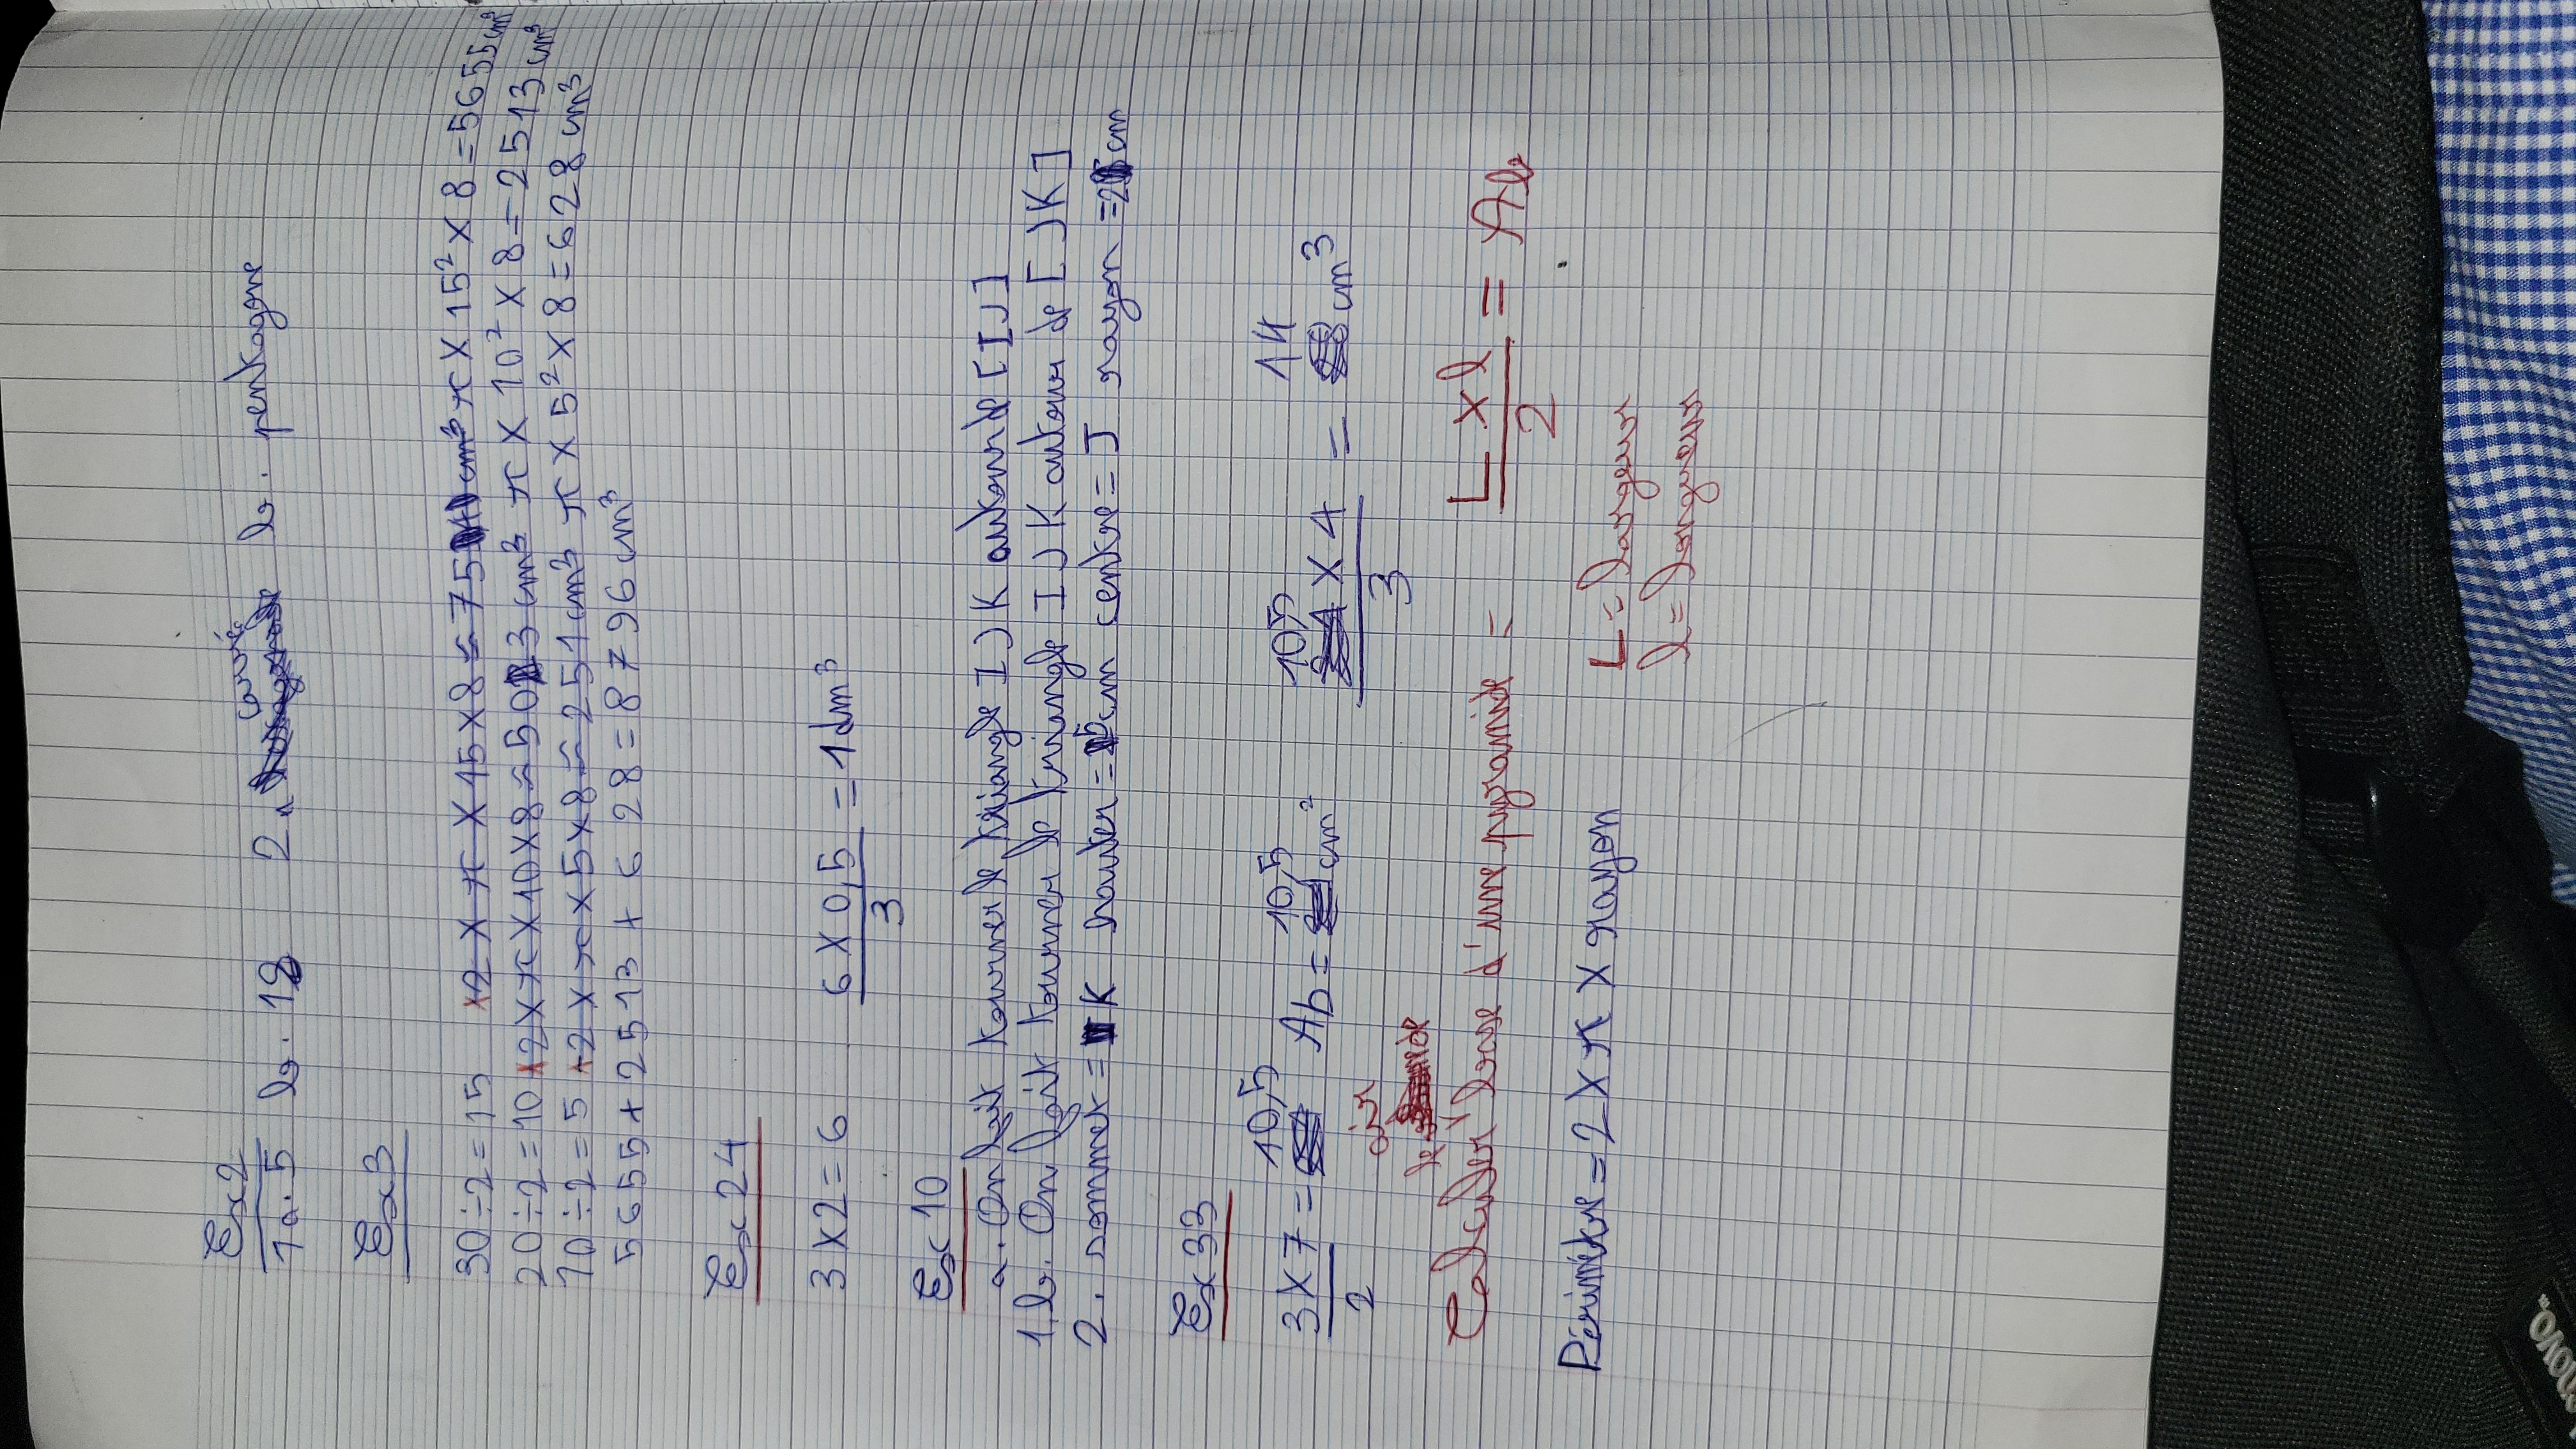 Ex2
1a. 5 b. 18 2a. carrée b. pentagone
Ex3
30÷2=15 ×2×π×15×8≈75 cm³ π×15²×8=5655cm³
20÷2=10 ×2×π×10×8≈503cm³ π×10²×8=2513cm³
10÷2=5 ×2×π×5×8≈251cm³ π×5²×8=628cm³
5655+2513+628=8796cm³
Ex24
3×2=6 6×0,5/3=1dm³
Ex10
a. On fait tourner le triangle IJK autour de [IJ]
1.b. On fait tourner le triangle IJK autour de [JK]
2. sommet=K hauter= cm centre=J rayon=2 cm
Ex33
3×7/2=10,5 Ab=10,5cm² 10,5×4/3=14cm³
air
le
Calculer base d'une pyramide = L×l/2=Ab
L=largeur
l=longueur
Périmétre=2×π×rayon